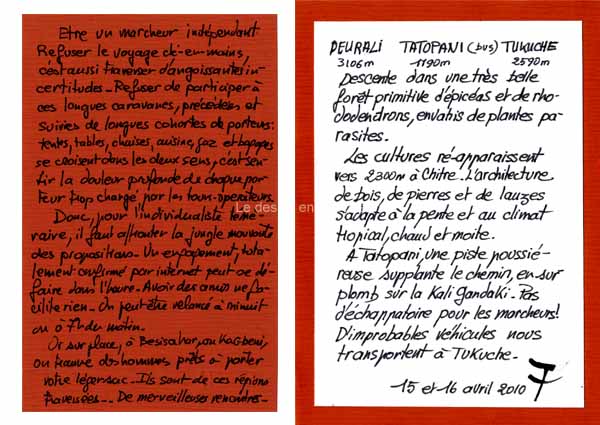 Etre un marcheur indépendant
Refuser le voyage clé-en-mains,
c'est aussi traverser d'angoissantes in-
certitudes - Refuser de participer à
ces longues caravanes, précédées et
suivies de longues cohortes de porteurs:
tentes, tables, chaises, cuisine, gaz et bagages
se croisent dans les deux sens, c'est sen-
tir la douleur profonde de chaque por-
teur trop chargé par les tour-operateurs.
Donc, pour l'individualiste témé-
raire, il faut affronter la jungle mouvante
des propositions. Un engagement, tota-
lement confirmé par internet peut se dé-
faire dans l'heure. Avoir des amis ne fa-
cilite rien. On peut être relancé à minuit
ou à 7h du matin.
Or sur place, à Besisahar, ou Kagbeni,
on trouve des hommes prêts à porter
votre léger sac. Ils sont de ces régions
traversées... De merveilleuses rencontres.
Le des en
DEURALI TATOPANI (bus) TUKUCHE
3106m 1190m 2590m
Descente dans une très belle
forêt primitive d'épicéas et de rho-
dodendrons, envahis de plantes pa-
rasites.
Les cultures ré-apparaissent
vers 2300m à Chitre. L'architecture
de bois, de pierres et de lauzes
s'adapte à la pente et au climat
tropical, chaud et moite.
A Tatopani, une piste poussié-
reuse supplante le chemin, en sur-
plomb sur la Kali Gandaki. Pas
d'échappatoire pour les marcheurs!
D'improbables véhicules nous
transportent à TUKuche.
15 et 16 avril 2010